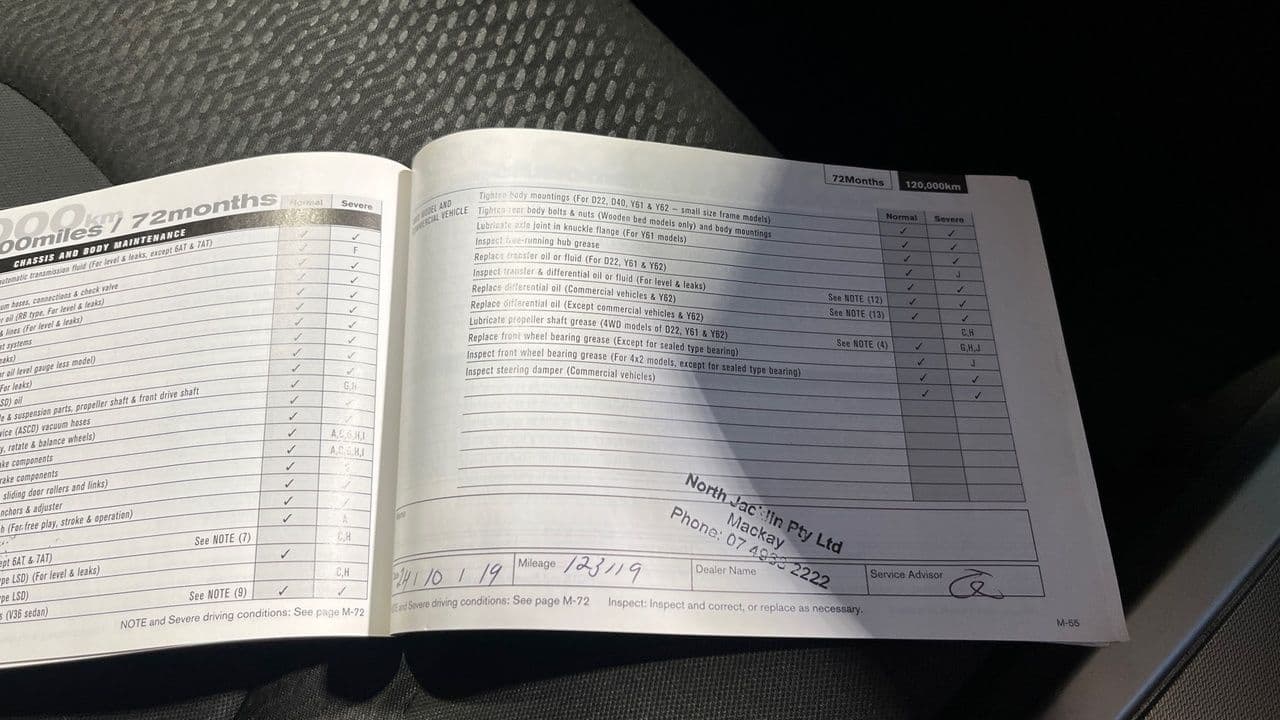 000km
00miles / 72months
Normal Severe
CHASSIS AND BODY MAINTENANCE
automatic transmission fluid (For level & leaks, except 6AT & 7AT) ✓ ✓
✓ F
um hoses, connections & check valve ✓ ✓
r oil (RB type, For level & leaks) ✓ ✓
& lines (For level & leaks) ✓ ✓
t systems ✓ ✓
aks) ✓ ✓
r oil level gauge less model) ✓ ✓
For leaks) ✓ ✓
SD) oil ✓ G,H
e & suspension parts, propeller shaft & front drive shaft ✓ ✓
vice (ASCD) vacuum hoses ✓ ✓
y, rotate & balance wheels) ✓
ake components ✓
rake components ✓
sliding door rollers and links) ✓ ✓
nchors & adjuster ✓ ✓
h (For free play, stroke & operation) ✓ A
See NOTE (7) C,H
ept 6AT & 7AT) ✓
pe LSD) (For level & leaks) C,H
pe LSD) See NOTE (9) ✓ ✓
s (V36 sedan)
NOTE and Severe driving conditions: See page M-72
72Months 120,000km
Normal Severe
MODEL AND
COMMERCIAL VEHICLE
Tighten body mountings (For D22, D40, Y61 & Y62 – small size frame models) ✓ ✓
Tighten rear body bolts & nuts (Wooden bed models only) and body mountings ✓ ✓
Lubricate axle joint in knuckle flange (For Y61 models) ✓ ✓
Inspect free-running hub grease ✓ J
Replace transfer oil or fluid (For D22, Y61 & Y62) ✓ ✓
Inspect transfer & differential oil or fluid (For level & leaks) ✓ ✓
Replace differential oil (Commercial vehicles & Y62) See NOTE (12) ✓ ✓
Replace differential oil (Except commercial vehicles & Y62) See NOTE (13) C,H
Lubricate propeller shaft grease (4WD models of D22, Y61 & Y62) ✓ G,H,J
Replace front wheel bearing grease (Except for sealed type bearing) See NOTE (4) J
Inspect front wheel bearing grease (For 4x2 models, except for sealed type bearing) ✓ ✓
Inspect steering damper (Commercial vehicles) ✓ ✓
North Jacklin Pty Ltd
Mackay
Phone: 07 2222
24 / 10 / 19 Mileage 123119 Dealer Name Service Advisor
and Severe driving conditions: See page M-72 Inspect: Inspect and correct, or replace as necessary.
M-55